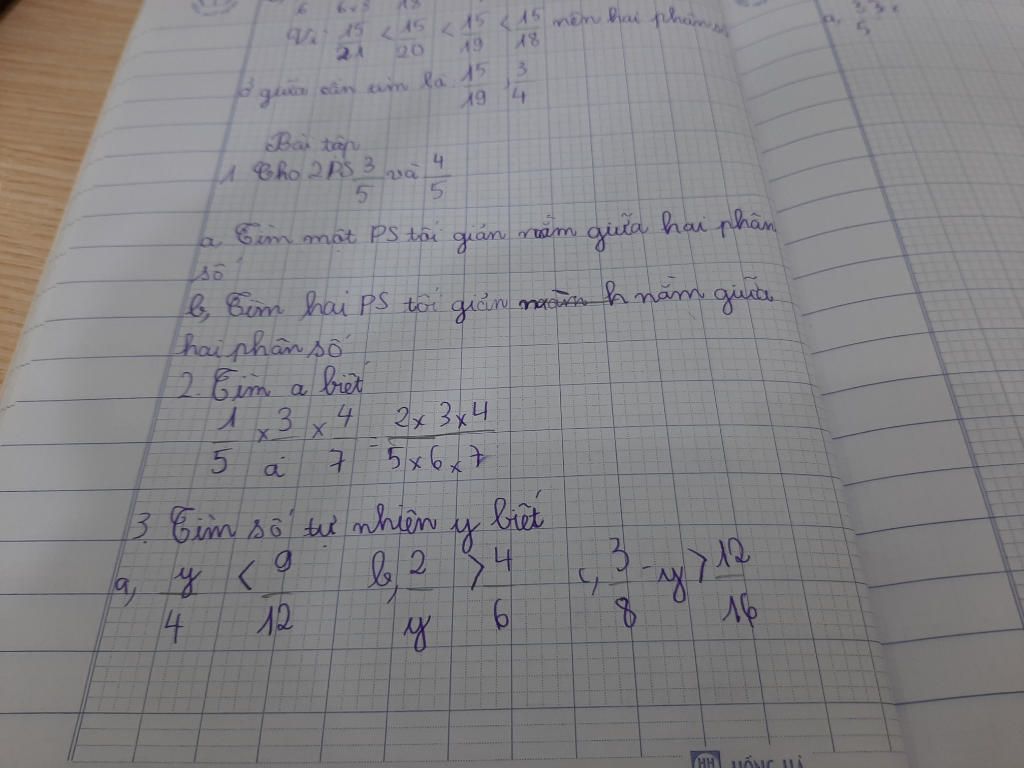 6 6×3 18
Vì: 15/21 < 15/20 < 15/19 < 15/18 nên hai phân số
ở giữa cần tìm là 15/19, 3/4
Bài tập
1. Cho 2 PS 3/5 và 4/5
a. Tìm một PS tối giản nằm giữa hai phân
số
b, Tìm hai PS tối giản nằm giữa
hai phân số
2. Tìm a biết
1/5 × 3/a × 4/7 = 2×3×4/5×6×7
3. Tìm số tự nhiên y biết
a, y/4 < 9/12 b, 2/y > 4/6 c, 3/8 - y > 12/16
a,
5
HH HỒNG HÀ